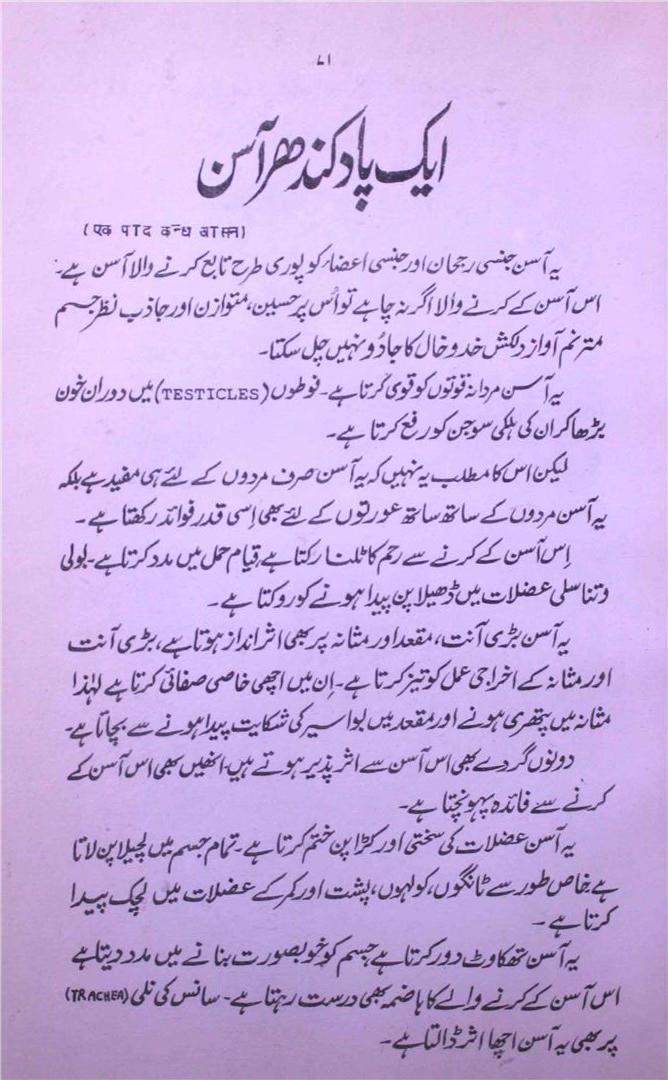 ۷۱
ایک پاد کندھر آسن
(एक पाद कन्ध आसन)
یہ آسن جنسی رجحان اور جنسی اعضاء کو پوری طرح تابع کرنے والا آسن ہے۔
اس آسن کے کرنے والا اگر نہ چاہے تو اُس پر حسین، متوازن اور جاذب نظر جسم
مترنم آواز دلکش خدوخال کا جادو نہیں چل سکتا۔
یہ آسن مردانہ قوتوں کو قوی کرتا ہے۔ فوطوں (TESTICLES) میں دوران خون
بڑھا کر ان کی ہلکی سوجن کو رفع کرتا ہے۔
لیکن اس کا مطلب یہ نہیں کہ یہ آسن صرف مردوں کے لئے ہی مفید ہے بلکہ
یہ آسن مردوں کے ساتھ ساتھ عورتوں کے لئے بھی اِسی قدر فوائد رکھتا ہے۔
اِس آسن کے کرنے سے رحم کا ٹلنا رکتا ہے قیام حمل میں مدد کرتا ہے۔ بولی
و تناسلی عضلات میں ڈھیلا پن پیدا ہونے کو روکتا ہے۔
یہ آسن بڑی آنت، مقعد اور مثانہ پر بھی اثر انداز ہوتا ہے، بڑی آنت
اور مثانہ کے اخراجی عمل کو تیز کرتا ہے۔ اِن میں اچھی خاصی صفائی کرتا ہے لہٰذا
مثانہ میں پتھری ہونے اور مقعد میں بواسیر کی شکایت پیدا ہونے سے بچاتا ہے۔
دونوں گردے بھی اس آسن سے اثر پذیر ہوتے ہیں۔ انھیں بھی اس آسن کے
کرنے سے فائدہ پہونچتا ہے۔
یہ آسن عضلات کی سختی اور کڑا پن ختم کرتا ہے۔ تمام جسم میں لچیلا پن لاتا
ہے خاص طور سے ٹانگوں، کولہوں، پشت اور کمر کے عضلات میں لچک پیدا
کرتا ہے۔
یہ آسن تھکاوٹ دور کرتا ہے جسم کو خوبصورت بنانے میں مدد دیتا ہے
اس آسن کے کرنے والے کا ہاضمہ بھی درست رہتا ہے۔ سانس کی نلی (TRACHEA)
پر بھی یہ آسن اچھا اثر ڈالتا ہے۔